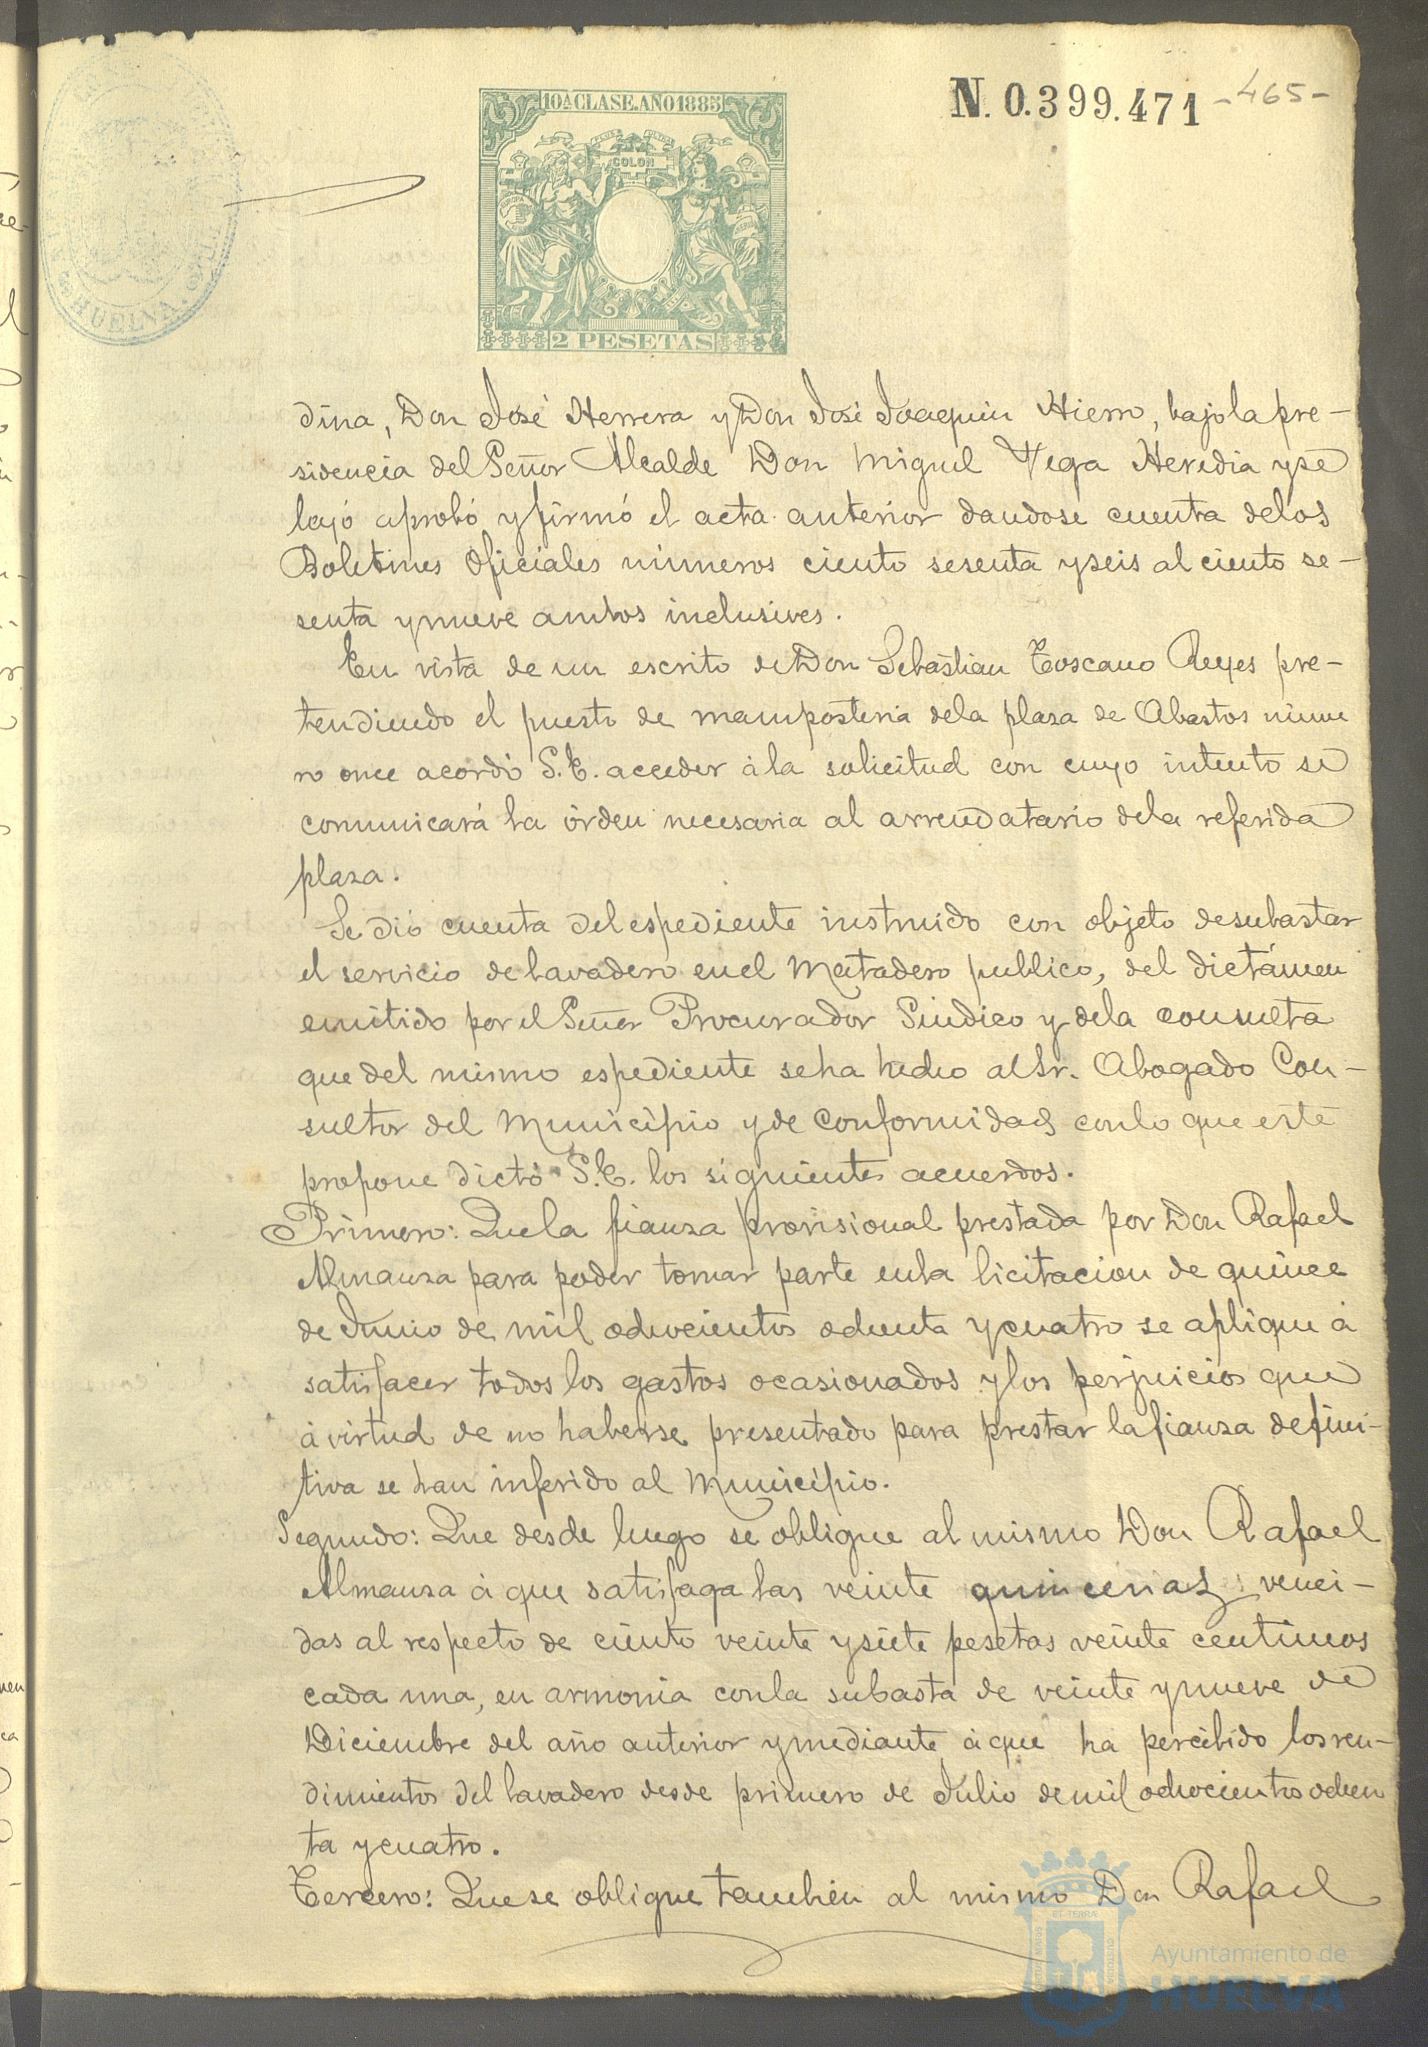 10ª CLASE. AÑO 1885
N. 0.399.471 -465-
PLUS ULTRA
COLON
EUROPA
2 PESETAS
HUELVA
dina, Don José Herrera y Don José Joaquin Hierro, bajo la pre-
sidencia del Señor Alcalde Don Miguel Vega Heredia y se
leyó aprobó y firmó el acta anterior dandose cuenta de los
Boletines Oficiales números ciento sesenta y seis al ciento se-
senta y nueve ambos inclusives.
En vista de un escrito de Don Sebastian Toscano Reyes pre-
tendiendo el puesto de mamposteria de la plaza de Abastos núme
ro once acordó S.E. acceder á la solicitud con cuyo intento se
comunicará la órden necesaria al arrendatario de la referida
plaza.
Se dió cuenta del espediente instruido con objeto de subastar
el servicio de lavadero en el Matadero publico, del dictámen
emitido por el Señor Procurador Sindico y de la consulta
que del mismo espediente se ha hecho al Sr. Abogado Con-
sultor del Municipio y de conformidad con lo que este
propone dictó S.E. los siguientes acuerdos.
Primero: Que la fianza provisional prestada por Don Rafael
Almansa para poder tomar parte en la licitacion de quince
de Junio de mil ochocientos ochenta y cuatro se aplique á
satisfacer todos los gastos ocasionados y los perjuicios que
á virtud de no haberse presentado para prestar la fianza defini-
tiva se han inferido al Municipio.
Segundo: Que desde luego se obligue al mismo Don Rafael
Almansa á que satisfaga las veinte quincenas venci-
das al respecto de ciento veinte y siete pesetas veinte centimos
cada una, en armonia con la subasta de veinte y nueve de
Diciembre del año anterior y mediante á que ha percibido los ren-
dimientos del lavadero desde primero de Julio de mil ochocientos ochen
ta y cuatro.
Tercero: Que se obligue tambien al mismo Don Rafael
Ayuntamiento de
HUELVA